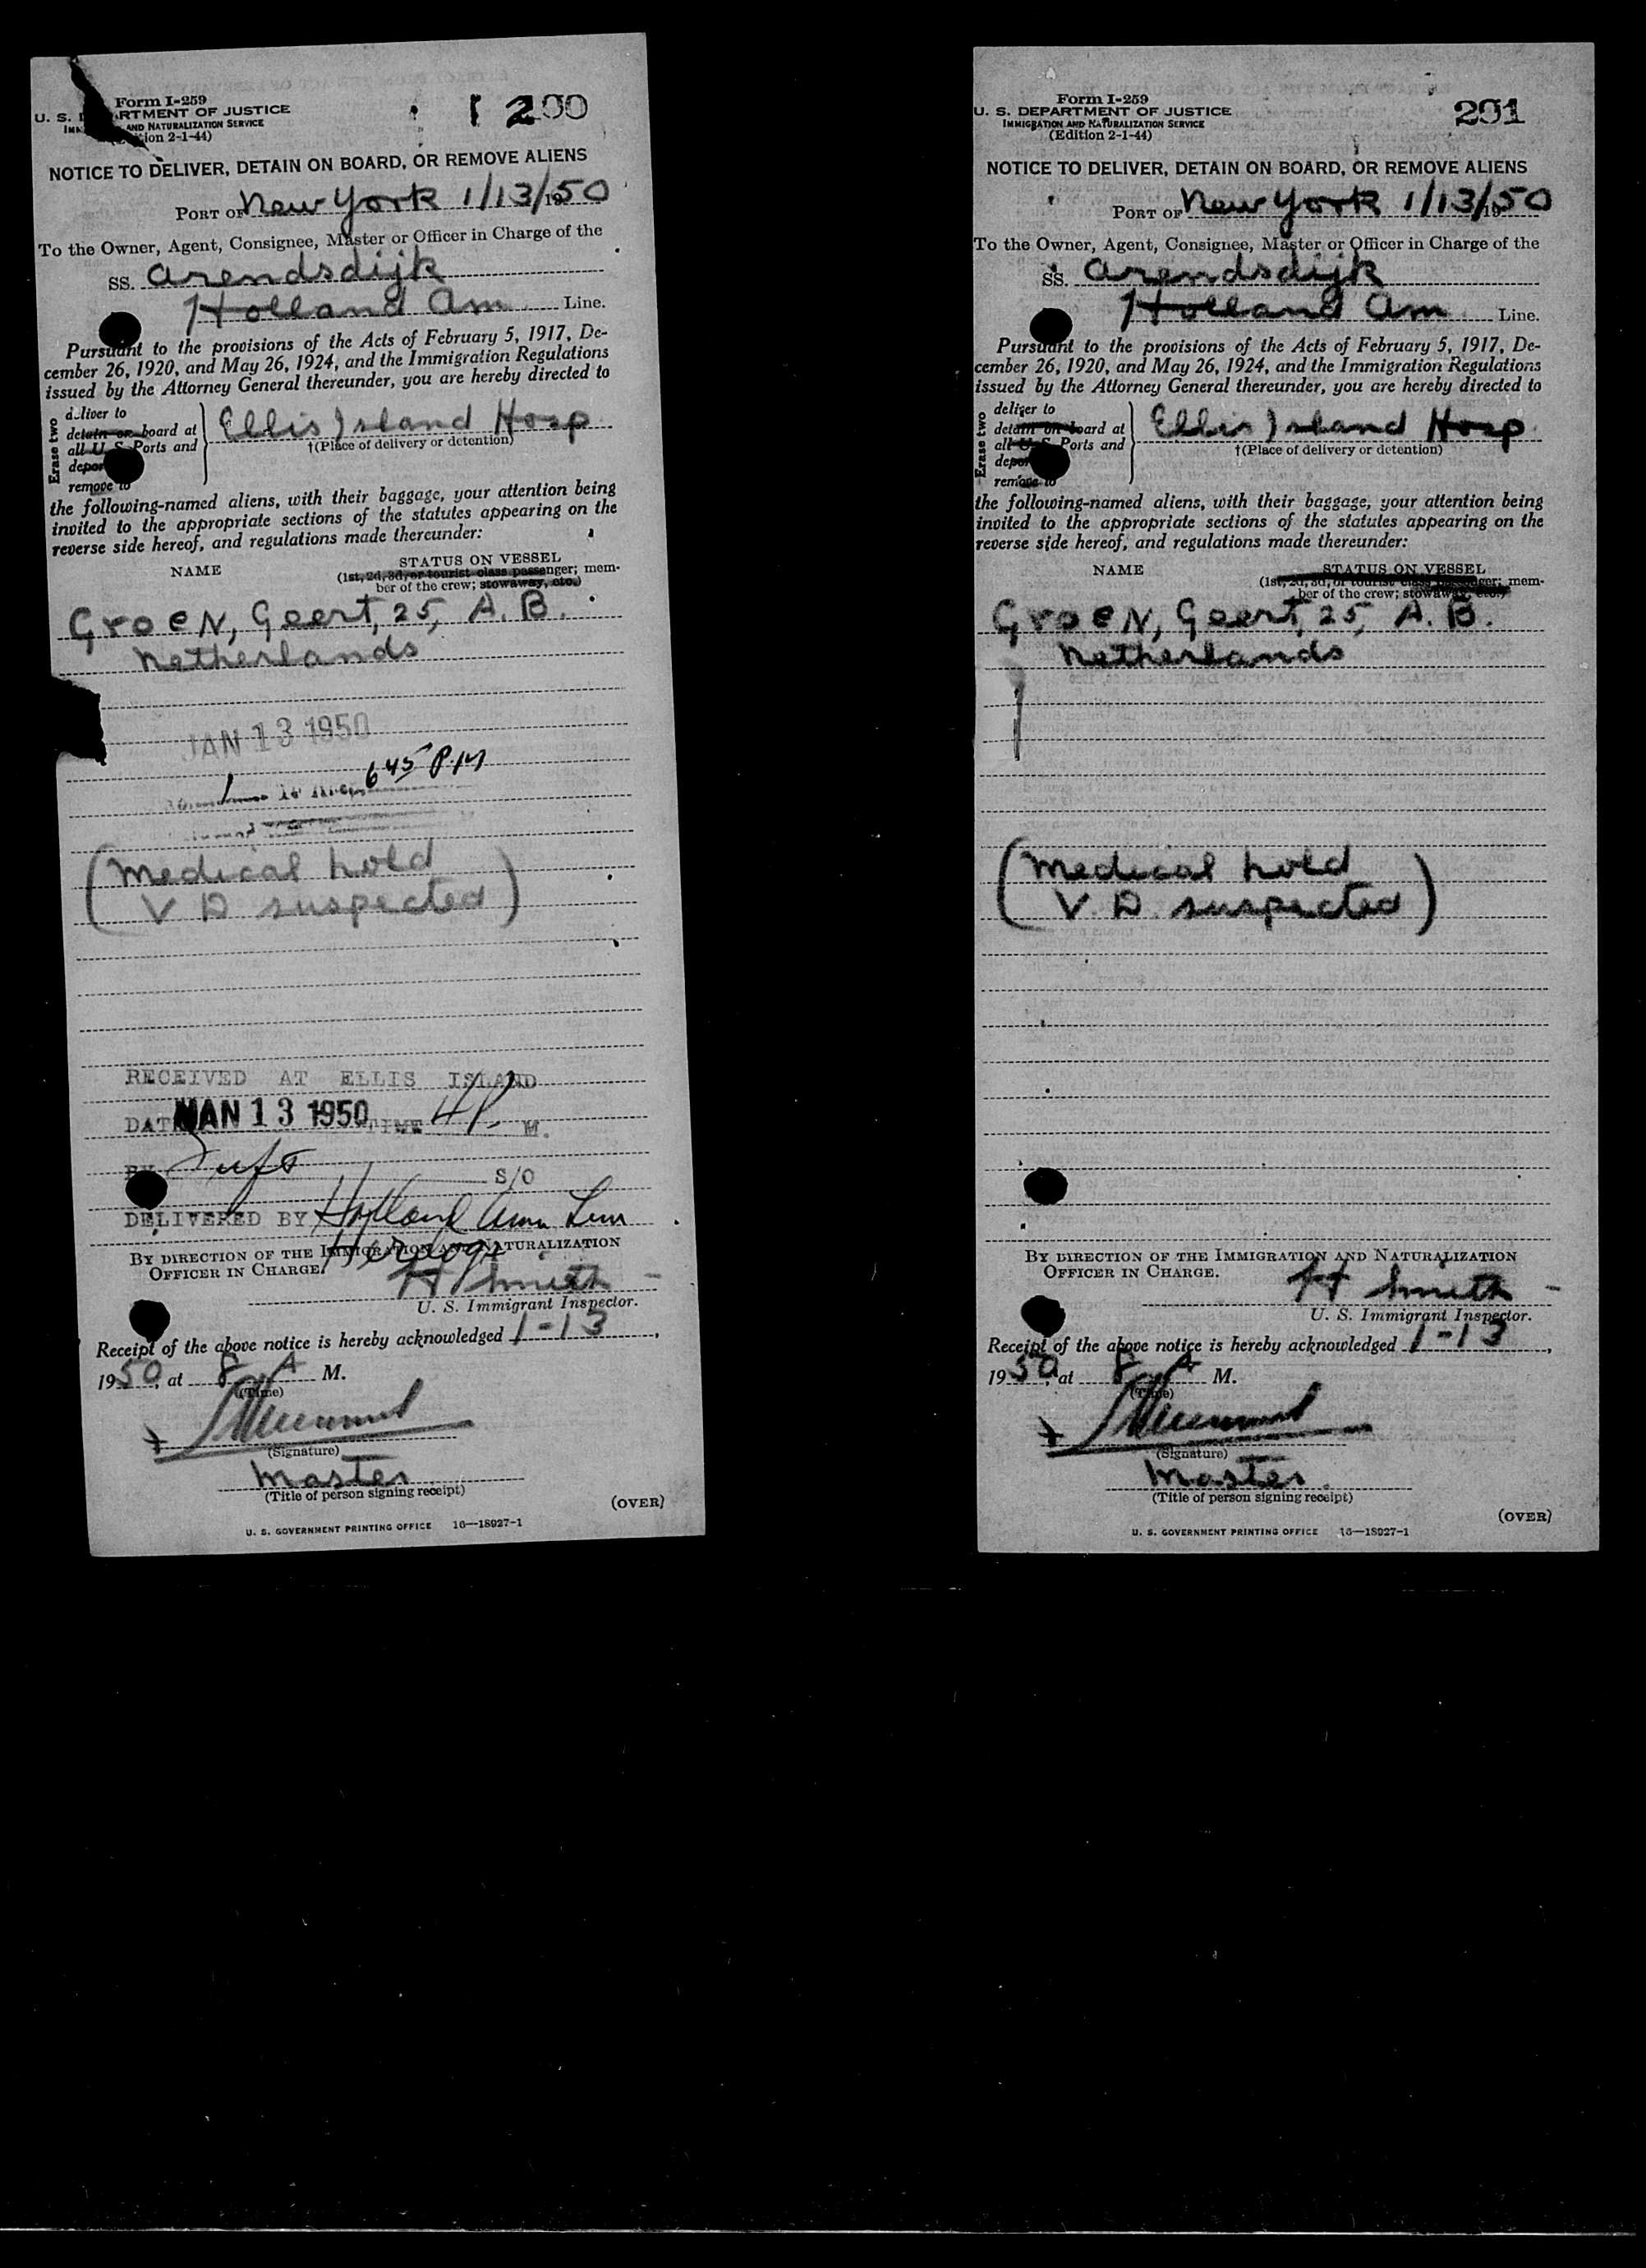 Form I-259
U. S. DEPARTMENT OF JUSTICE
AND NATURALIZATION SERVICE
(Edition 2-1-44)
200
NOTICE TO DELIVER, DETAIN ON BOARD, OR REMOVE ALIENS
PORT OF New York 1/13/1950
To the Owner, Agent, Consignee, Master or Officer in Charge of the
SS. Arendsdijk
Holland Am Line.
Pursuant to the provisions of the Acts of February 5, 1917, De-
cember 26, 1920, and May 26, 1924, and the Immigration Regulations
issued by the Attorney General thereunder, you are hereby directed to
Erase two
deliver to
detain on board at
all U S Ports and
depor
remove to
Ellis Island Hosp
†(Place of delivery or detention)
the following-named aliens, with their baggage, your attention being
invited to the appropriate sections of the statutes appearing on the
reverse side hereof, and regulations made thereunder:
NAME
STATUS ON VESSEL
(1st, 2d, 3d, or tourist class passenger; mem-
ber of the crew; stowaway, etc.)
Groen, Geert, 25, A. B.
Netherlands
JAN 13 1950
6 45 PM
(Medical hold
V D suspected)
RECEIVED AT ELLIS ISLAND
DATE JAN 13 1950 TIME 4 P. M.
BY S/O
DELIVERED BY Holland Am Line
BY DIRECTION OF THE IMMIGRATION AND NATURALIZATION
OFFICER IN CHARGE.
H Smith
U. S. Immigrant Inspector.
Receipt of the above notice is hereby acknowledged 1-13,
1950, at 8 A M.
(Time)
(Signature)
Master
(Title of person signing receipt)
(OVER)
U. S. GOVERNMENT PRINTING OFFICE 16—18927-1
Form I-259
U. S. DEPARTMENT OF JUSTICE
IMMIGRATION AND NATURALIZATION SERVICE
(Edition 2-1-44)
201
NOTICE TO DELIVER, DETAIN ON BOARD, OR REMOVE ALIENS
PORT OF New York 1/13/1950
To the Owner, Agent, Consignee, Master or Officer in Charge of the
SS. Arendsdijk
Holland Am Line.
Pursuant to the provisions of the Acts of February 5, 1917, De-
cember 26, 1920, and May 26, 1924, and the Immigration Regulations
issued by the Attorney General thereunder, you are hereby directed to
Erase two
deliver to
detain on board at
all U S Ports and
depor
remove to
Ellis Island Hosp
†(Place of delivery or detention)
the following-named aliens, with their baggage, your attention being
invited to the appropriate sections of the statutes appearing on the
reverse side hereof, and regulations made thereunder:
NAME
STATUS ON VESSEL
(1st, 2d, 3d, or tourist class passenger; mem-
ber of the crew; stowaway, etc.)
Groen, Geert, 25, A. B.
Netherlands
(Medical hold
V. D. suspected)
BY DIRECTION OF THE IMMIGRATION AND NATURALIZATION
OFFICER IN CHARGE.
H Smith
U. S. Immigrant Inspector.
Receipt of the above notice is hereby acknowledged 1-13,
1950, at 8 A M.
(Time)
(Signature)
Master
(Title of person signing receipt)
(OVER)
U. S. GOVERNMENT PRINTING OFFICE 16—18927-1